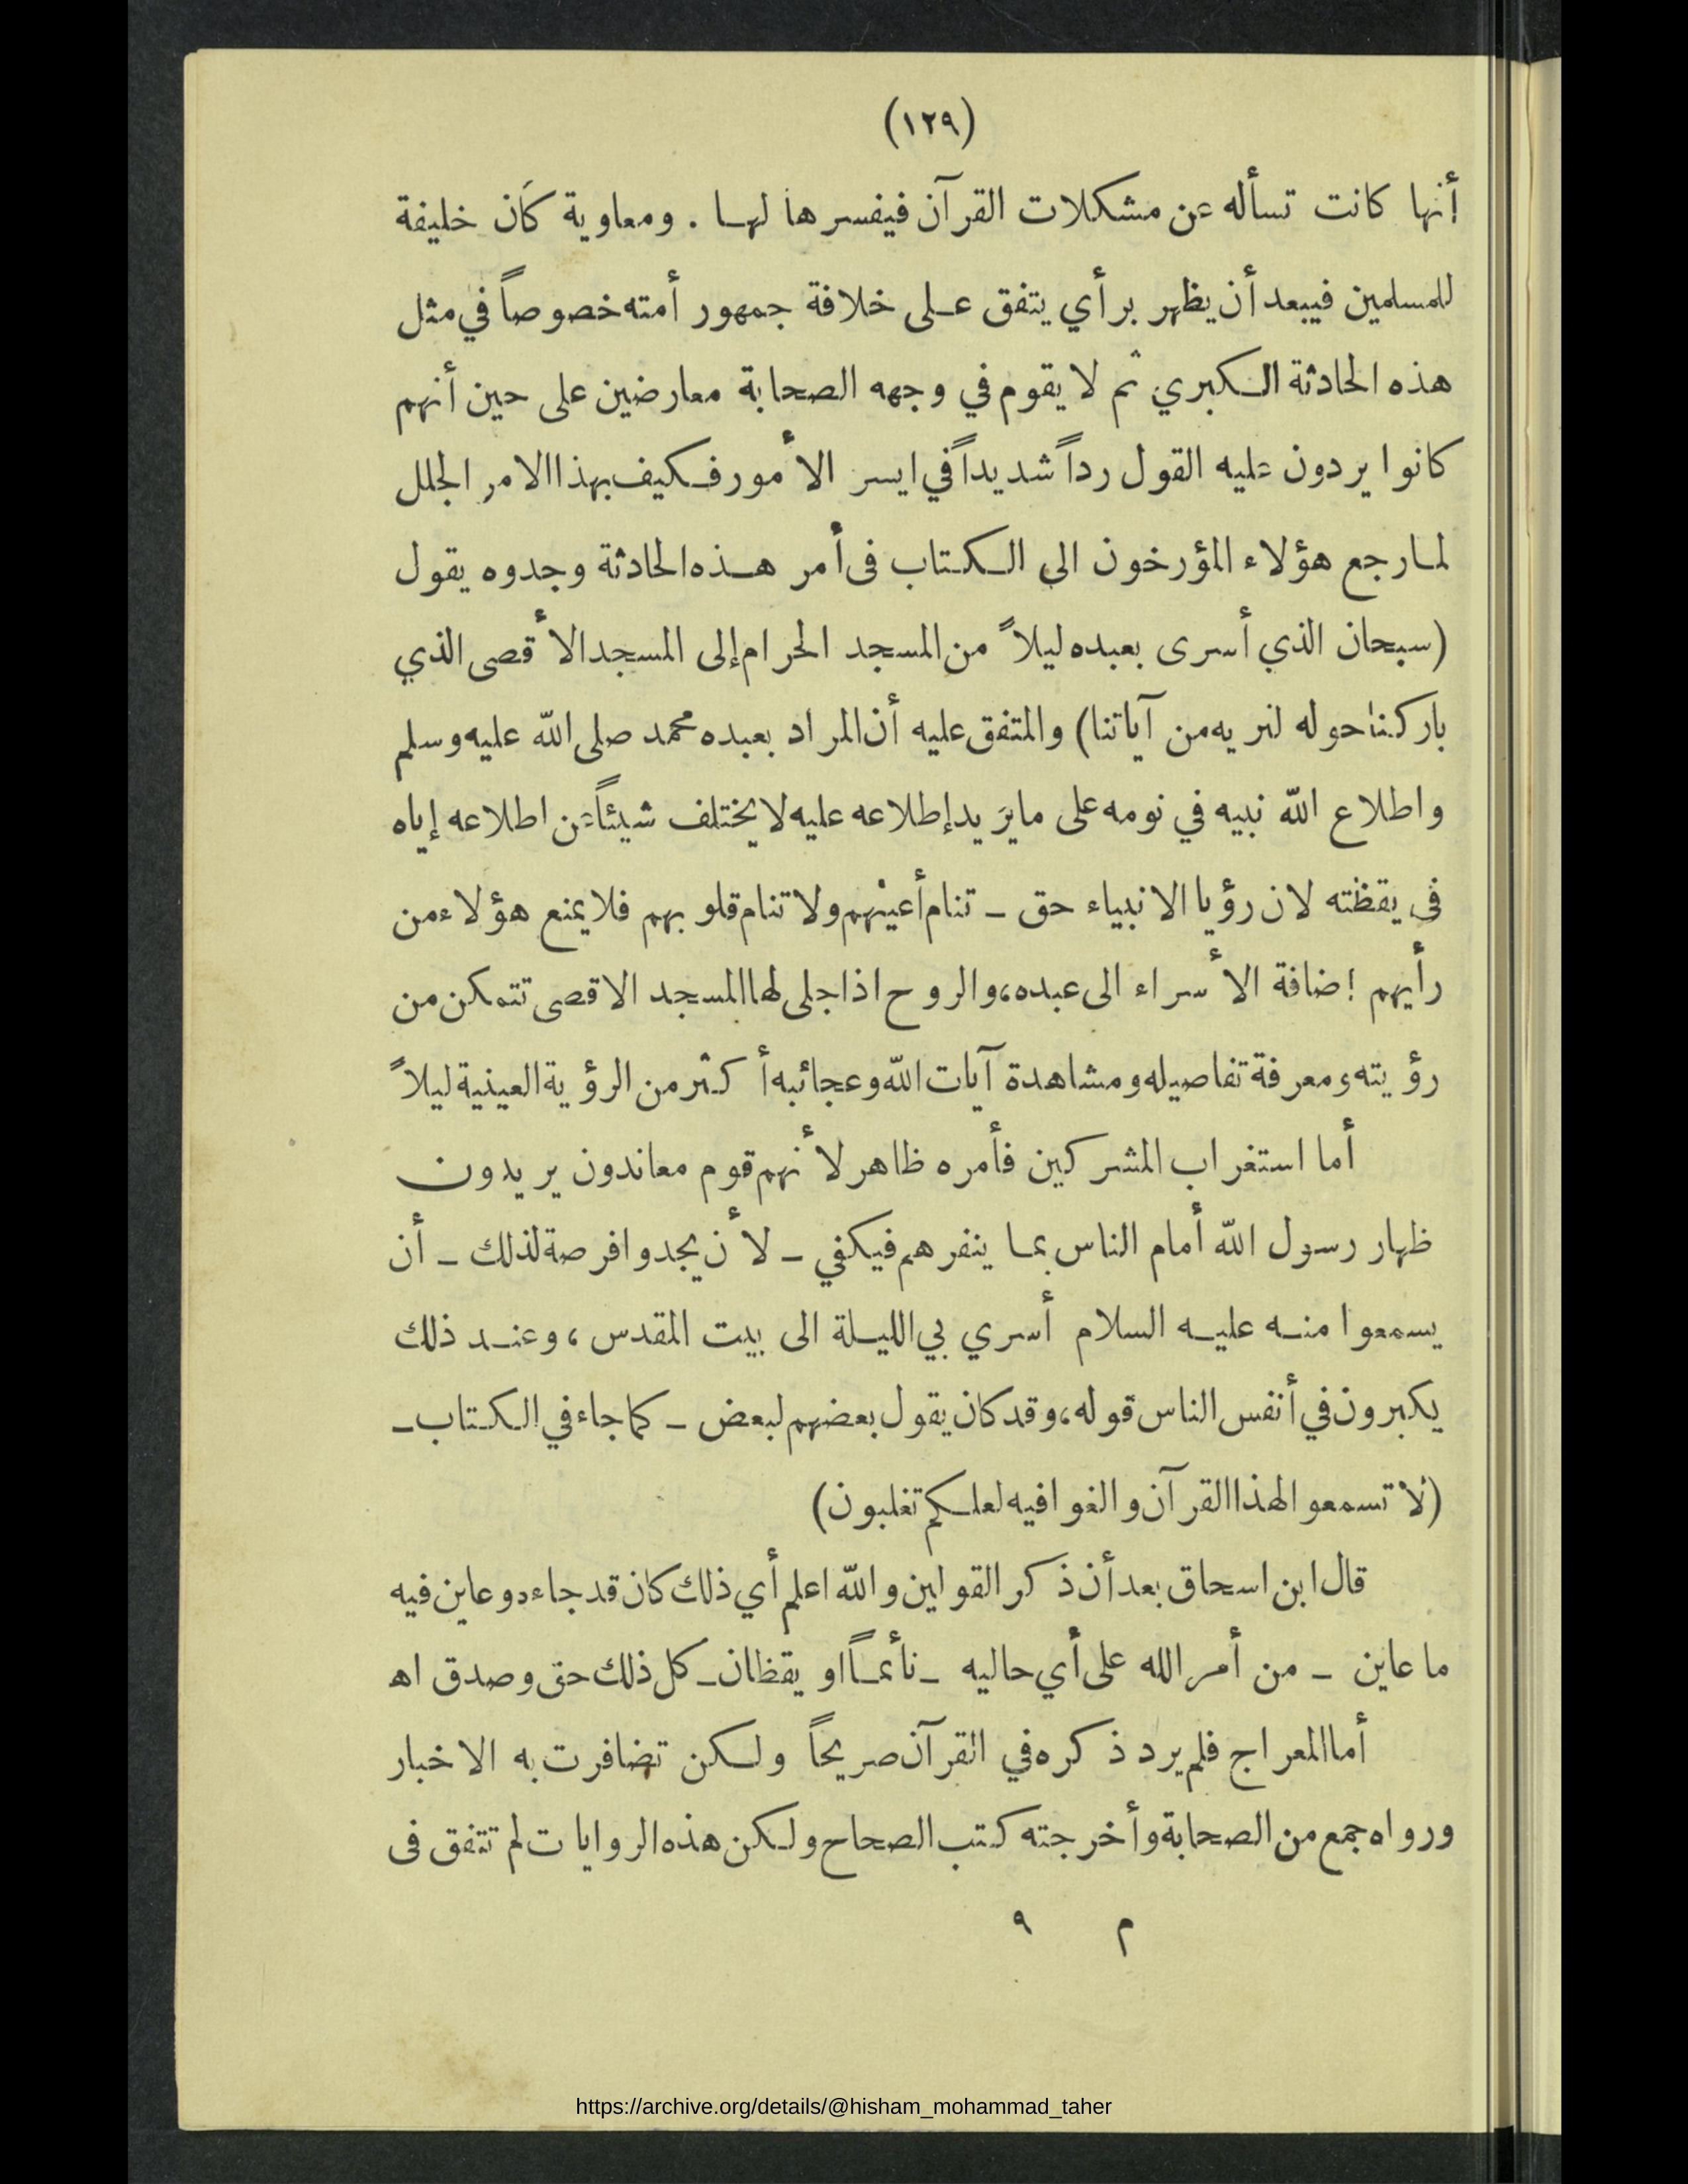 (١٢٩)
أنها كانت تسأله عن مشكلات القرآن فيفسرها لها . ومعاوية كان خليفة
للمسلمين فيبعد أن يظهر برأي يتفق على خلافة جمهور أمته خصوصاً في مثل
هذه الحادثة الكبري ثم لا يقوم في وجهه الصحابة معارضين على حين أنهم
كانوا يردون عليه القول رداً شديداً في ايسر الأمور فكيف بهذا الامر الجلل
لما رجع هؤلاء المؤرخون الى الكتاب فى أمر هذه الحادثة وجدوه يقول
(سبحان الذي أسرى بعبده ليلاً من المسجد الحرام إلى المسجد الأقصى الذي
باركنا حوله لنريه من آياتنا) والمتفق عليه أن المراد بعبده محمد صلى الله عليه وسلم
واطلاع الله نبيه في نومه على ما يريد إطلاعه عليه لا يختلف شيئاً عن اطلاعه إياه
فى يقظته لان رؤيا الانبياء حق ـ تنام أعينهم ولا تنام قلوبهم فلا يمنع هؤلاء من
رأيهم إضافة الأسراء الى عبده، والروح اذا جلى لها المسجد الاقصى تتمكن من
رؤيته ومعرفة تفاصيله ومشاهدة آيات الله وعجائبه أكثر من الرؤية العينية ليلاً
أما استغراب المشركين فأمره ظاهر لأنهم قوم معاندون يريدون
ظهار رسول الله أمام الناس بما ينفرهم فيكفي ـ لأن يجدوا فرصة لذلك ـ أن
يسمعوا منه عليه السلام أسري بي الليلة الى بيت المقدس ، وعند ذلك
يكبرون في أنفس الناس قوله، وقد كان يقول بعضهم لبعض ـ كما جاء في الكتاب ـ
(لا تسمعوا لهذا القرآن والغوا فيه لعلكم تغلبون)
قال ابن اسحاق بعد أن ذكر القولين والله اعلم أي ذلك كان قد جاءه وعاين فيه
ما عاين ـ من أمر الله على أي حاليه ـ نأئماً او يقظان ـ كل ذلك حق وصدق اه
أما المعراج فلم يرد ذكره في القرآن صريحاً ولكن تضافرت به الاخبار
ورواه جمع من الصحابة وأخرجته كتب الصحاح ولكن هذه الروايات لم تتفق فى
م ٩
https://archive.org/details/@hisham_mohammad_taher